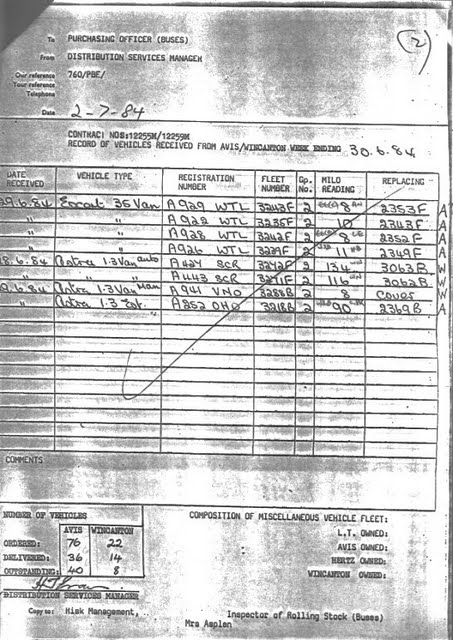 (2)
To PURCHASING OFFICER (BUSES)
From DISTRIBUTION SERVICES MANAGER
Our reference 760/PBE/
Your reference
Telephone
Date 2-7-84
CONTRACT NOS:12255M/12259M
RECORD OF VEHICLES RECEIVED FROM AVIS/WINCANTON WEEK ENDING 30.6.84
DATE RECEIVED VEHICLE TYPE REGISTRATION NUMBER FLEET NUMBER Gp. No. MILO READING REPLACING
29.6.84 Escort 35 Van A929 WTL 3243F 2 8 2353F A
" " A922 WTL 3235F 2 10 2343F A
" " A928 WTL 3242F 2 8 2352F A
" " A926 WTL 2 11 2349F A
28.6.84 Astra 1.3 Van auto A427 SCR 3272F 2 134 3063B W
" " " A443 SCR 3271F 2 116 3062B W
29.6.84 Astra 1.3 Van Man A941 VMO 3288B 2 8 Cover W
" Astra 1.3 Est. A252 OHO 3218B 2 90 2369B A
COMMENTS
NUMBER OF VEHICLES
AVIS WINCANTON
ORDERED: 76 22
DELIVERED: 36 14
OUTSTANDING: 40 8
DISTRIBUTION SERVICES MANAGER
COMPOSITION OF MISCELLANEOUS VEHICLE FLEET:
L.T. OWNED:
AVIS OWNED:
HERTZ OWNED:
WINCANTON OWNED:
Copy to: Risk Management, Inspector of Rolling Stock (Buses)
Mrs Asplen